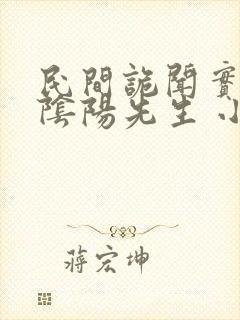 民間詭聞實
陰陽先生 小
蔣宏坤